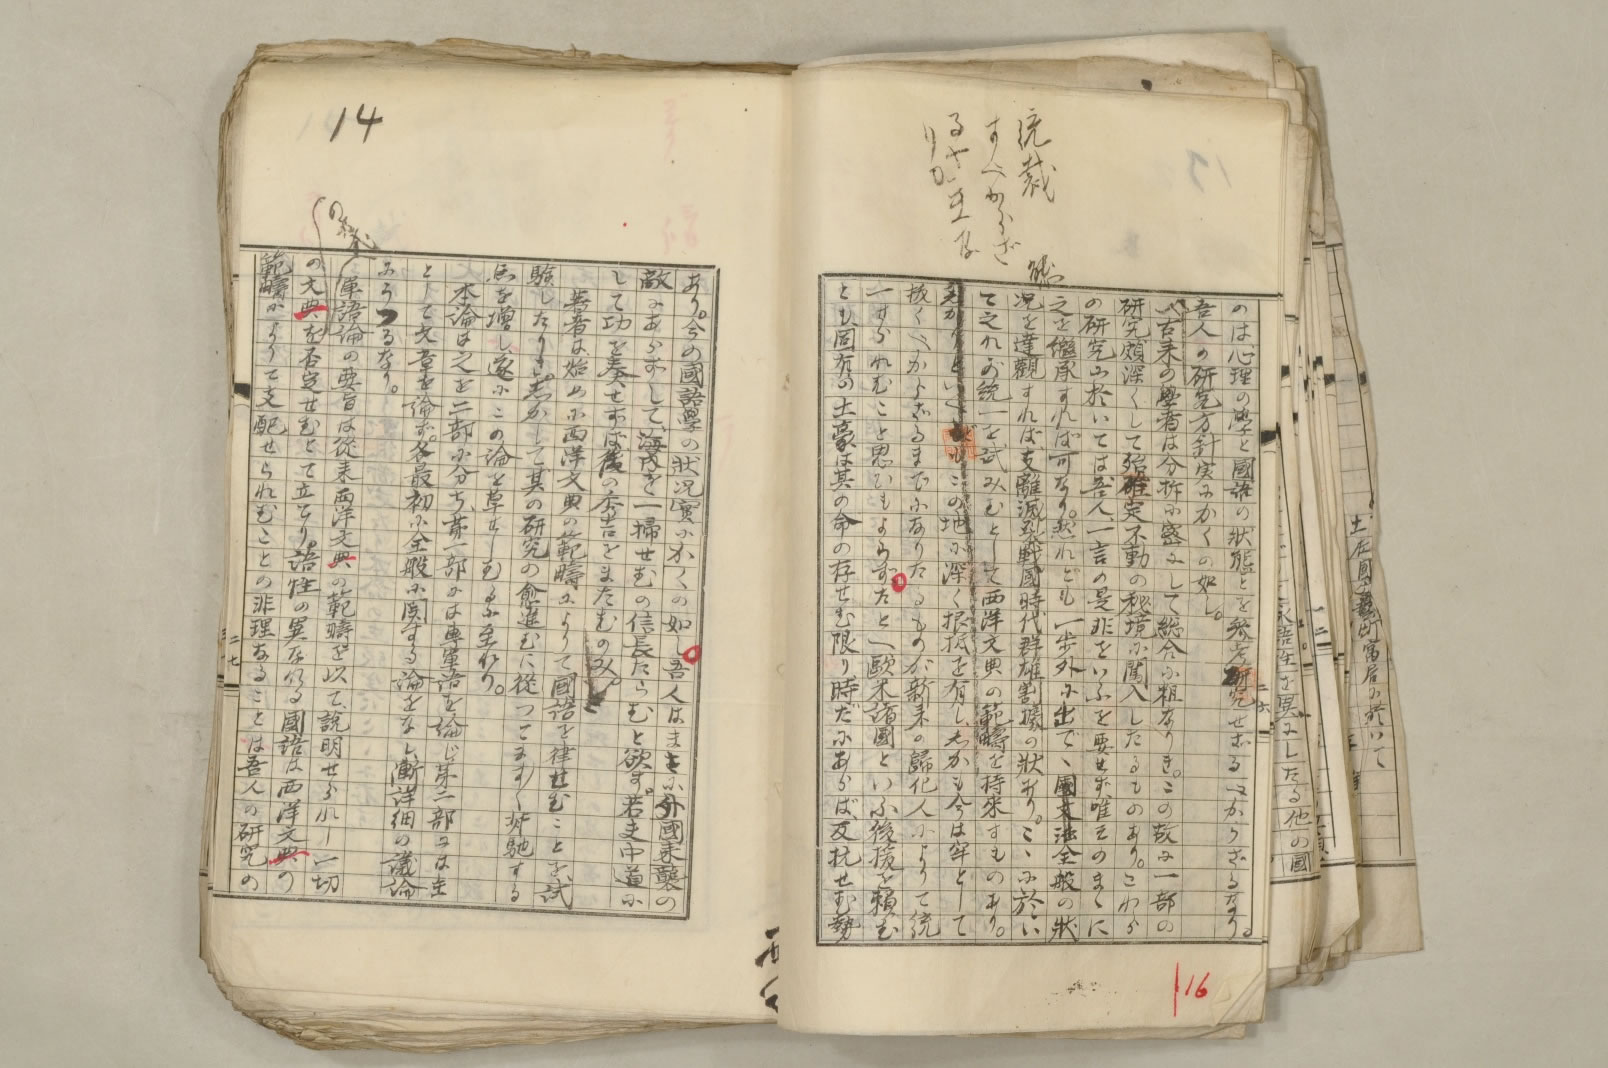 のは心理の學と國語の狀態とを參考研究せざるべからざるなり。
吾人の研究方針実にかくの如し。
古來の學者は分拆に密にして総合に粗なりき。この故に一部の
研究頗深くして殆確定不動の秘境に闖入したるものあり。これら
の研究に於いては吾人、一言の是非をいふを要せず唯そのまゝに
之を繼承すれば可なり。然れども一歩外に出で、國文法全般の狀
况を達觀すれば支離滅裂戰國時代群雄割據の狀あり。こゝに於い
て之れが統一を試みむとして西洋文典の範疇を持來すものあり。
どもこの地に深く根抵を有し、しかも今は牢として
拔くべからざるまでにありたるものが新来の歸化人によりて統
一せられむこと思ひもよらずたとへ歐米諸國といふ後援を賴む
とも固有の土豪は其の命の存せむ限り時だにあらば反抗せむ勢
統裁
すべからざ
るさまな
りき
16
14
あり。今の國語學の狀況實にかくの如し吾人はまさに外國来襲の
敵にあらずして、海内を一掃せむの信長たらむと欲す。若夫中道に
して功を奏せずば後の秀吉をまたむのみ。
著者は始めに西洋文典の範疇によりて國語を律せむことを試
驗したりき。しかして其の研究の愈進むに從つてますく背馳する
点を增し遂にこの論を草せしむるに至れり。
本論は之を二部に分ち、第一部には專單語を論じ第二部には主
として文章を論ず。各最初に全般に関する論をなし漸詳細の議論
にうつるなり。
單語論の要旨は從来西洋文典の範疇を以て、說明せられし一切
の文典を否定せむとて立てり。語性の異なれる國語は西洋文典の
範疇によりて支配せられむことの非理なることは吾人の研究の
二七